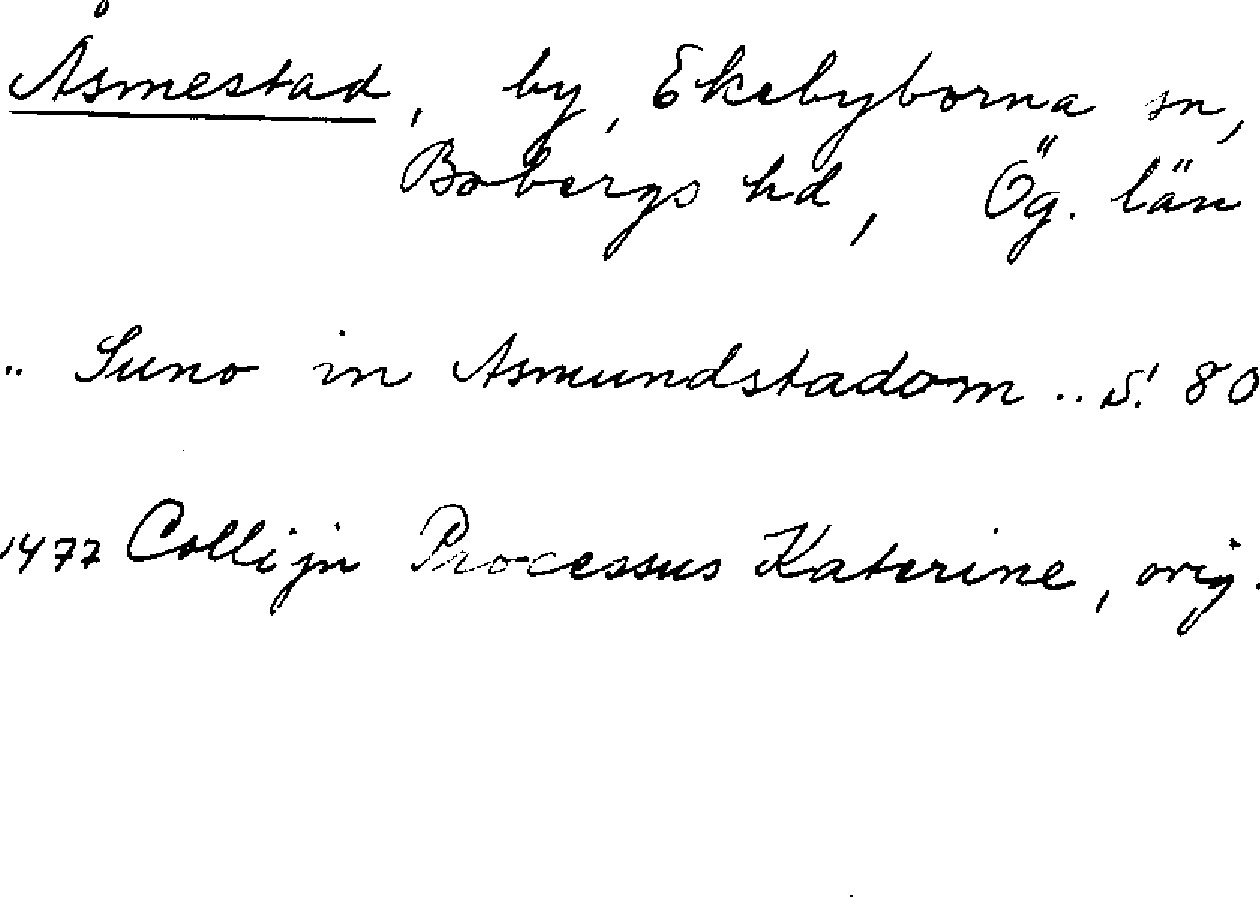 Åsmestad, by, Ekebyborna sn,
Bobergs hd, Ög. län
.. Suno in Asmundstadom .. s. 80
1477 Collijn Processus Katerine, orig.